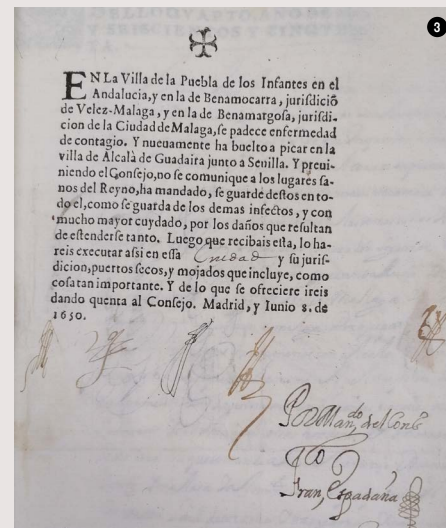 3
EN La Villa de la Puebla de los Infantes en el
Andalucia, y en la de Benamocarra, jurisdiciõ
de Velez-Malaga, y en la de Benamargosa, jurisdi-
cion de la Ciudad de Malaga, se padece enfermedad
de contagio. Y nueuamente ha buelto a picar en la
villa de Alcalà de Guadaira junto a Seuilla. Y preui-
niendo el Consejo, no se comunique a los lugares sa-
nos del Reyno, ha mandado, se guarde destos en to-
do el, como se guarda de los demas infectos, y con
mucho mayor cuydado, por los daños que resultan
de estenderse tanto. Luego que recibais esta, lo ha-
reis executar assi en essa Ciudad y su juris-
dicion, puertos secos, y mojados que incluye, como
cosa tan importante. Y de lo que se ofreciere ireis
dando quenta al Consejo. Madrid, y Iunio 8. de
1650.
Por Man.do del Cons.
Fran, Espadaña